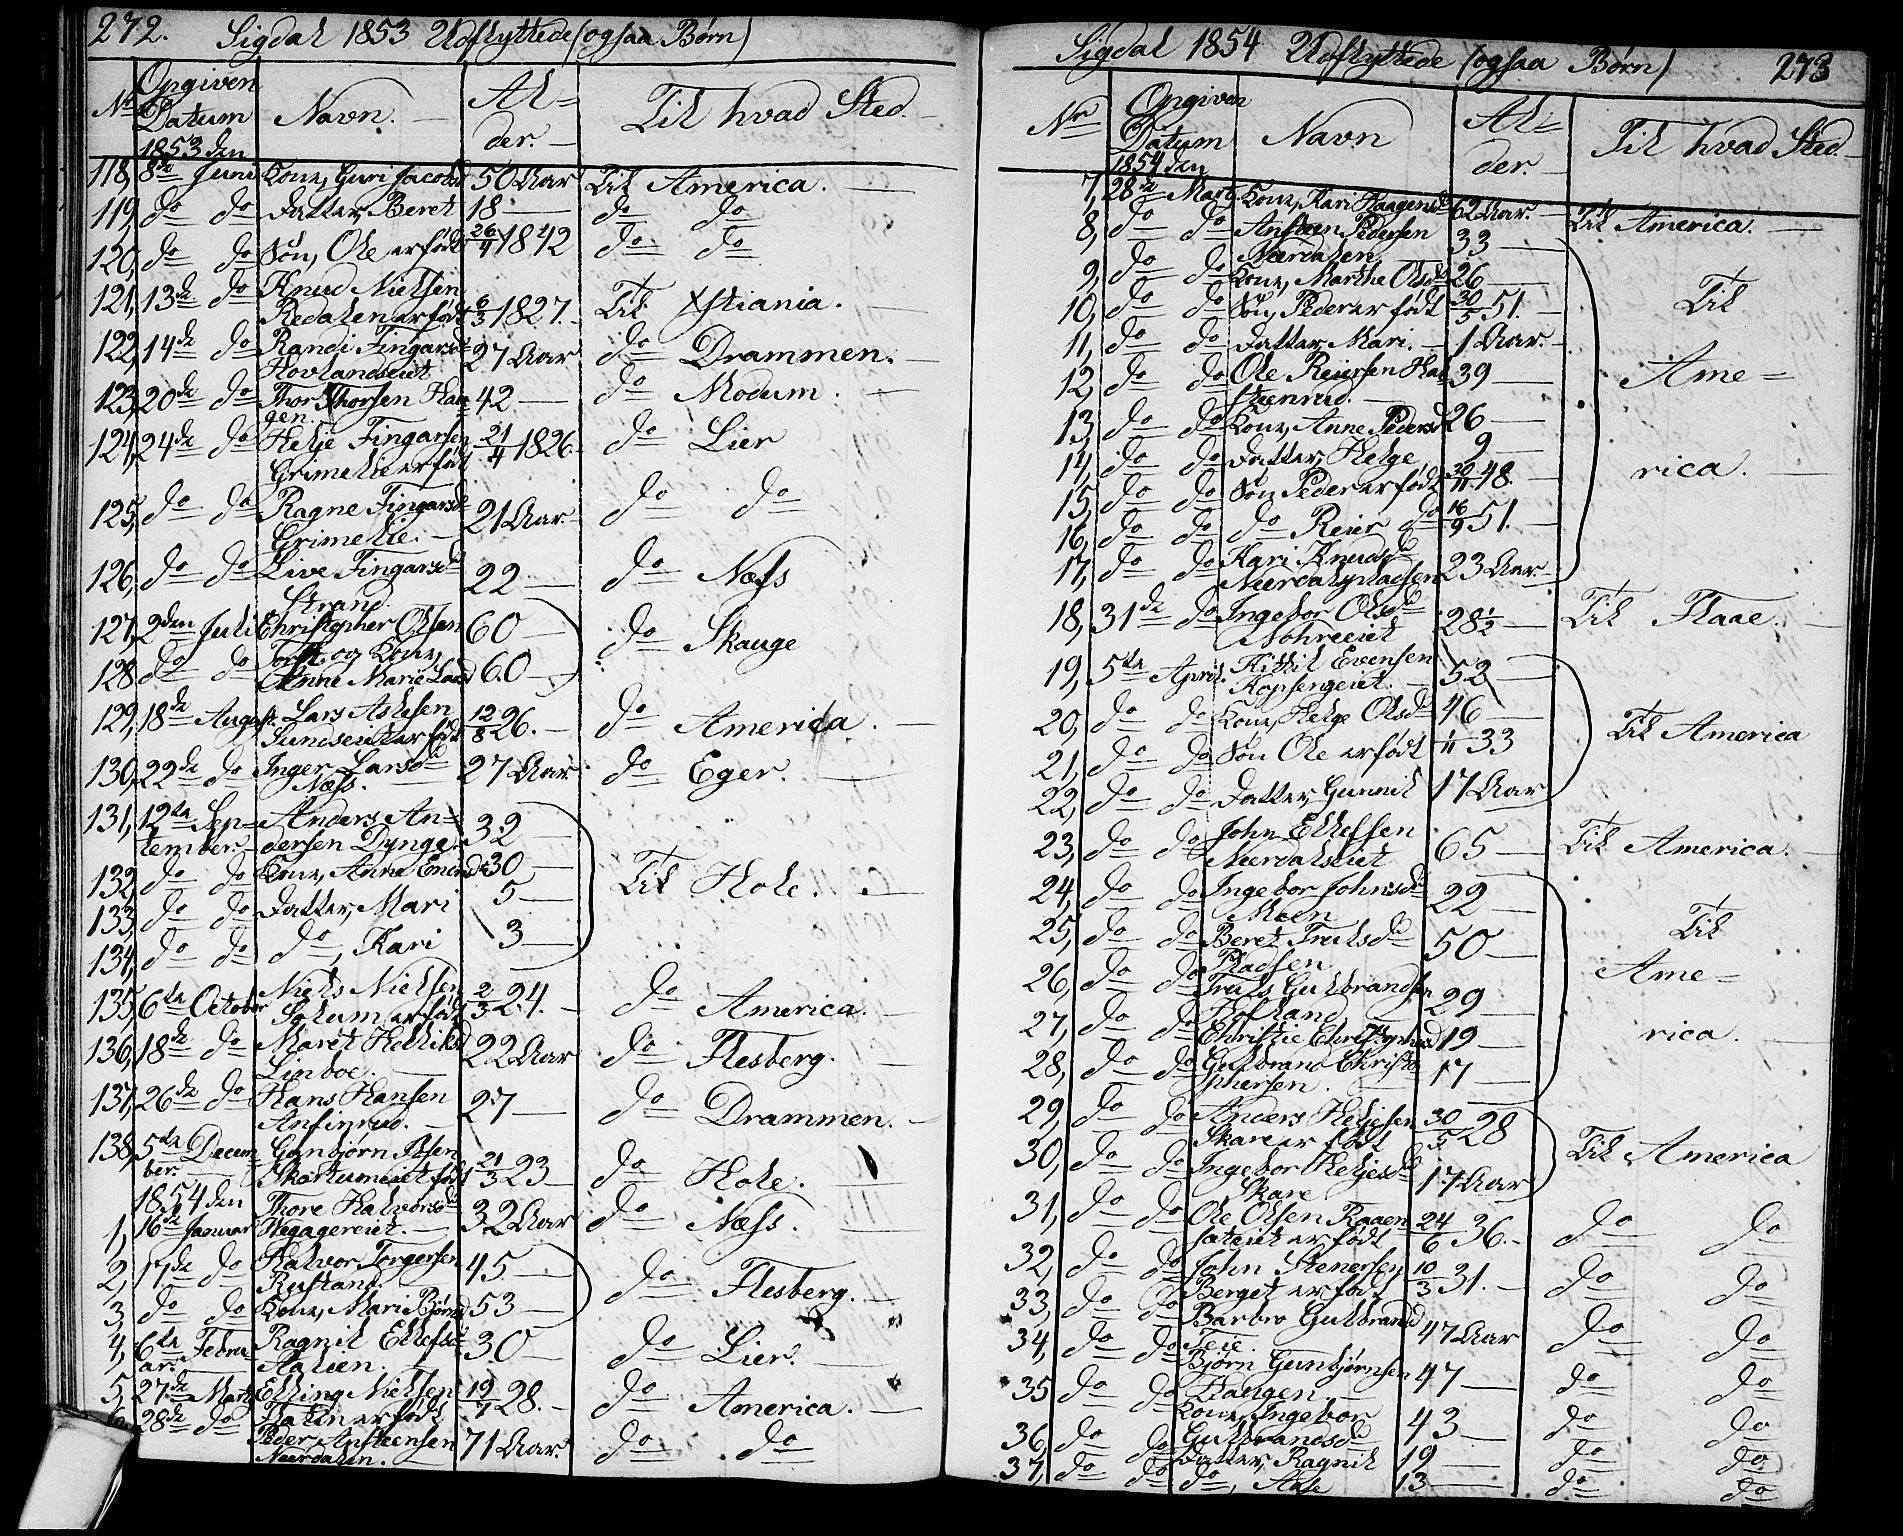 272. Sigdal 1853 Udflyttede (ogsaa Børn)
No Opgiven Datum 1853 den Navn. Al= der. Til hvad Sted.
118, 8de Juni Kone, Guri Jacobsd 50 Aar Til America.
119, do do Datter, Beret 18 do do
120, do do Søn, Ole er født 26/4 1842 do do
121, 13de do Knud Nielsen
Redalen er født 6/3 1827. Til Xstiania.
122, 14de do Randi Fingarsd
Hovlandseiet 27 Aar do Drammen.
123, 20de do Thor Thorsen Hau
gen. 42 do Modum.
124, 24de do Helje Fingarsen
Grimelie er født 21/4 1826. do Lier
125, do do Ragne Fingarsd
Grimelie. 21 Aar. do do
126, do do Live Fingarsd
Strand. 22 do Næss
127, 2den Juli Christopher Olsen 60 do Skauge
128 do do og Kone,
Anne Marie 60
129, 18de August. Lars Aslesen
Sundseiet er født 12/8 26. do America.
130, 22de do Inger Larsd
Næss. 27 Aar. do Eger.
131, 12te Sep= Anders An=
tember. dersen Dynge. 32
132, do do Kone, Anne Enersd 30 Til Hole.
133, do do Datter, Mari 5
134, do do do, Kari 3
135, 6te October Niels Nielsen
Solum er født 2/3 24. do America.
136, 18de do Marit Helliksd
Linboe. 22 Aar do Flesberg.
137, 26de do Hans Hansen
Anfinrud. 27 do Drammen.
138, 5te Decem Gunbjørn
ber. Skartumeiet født 21/3 23 do Hole.
1854 den Thore Halvorsd
1, 16de Januar Hegagereiet. 32 Aar do Næss.
2, 17de do Halvor Torgersen
Rustand. 45 do Flesberg.
3, do do Kone, Mari Bjørnsd 53
4, 6te Febru Ragnil Ellefsd
ar. Aalien. 30 do Lier.
5, 27de Marts Elling Nielsen
Flaten er født 19/7 28. do America.
6, 28de do Peder Ansteensen
Nærdalen. 71 Aar. do do
Sigdal 1854 Udflyttede (ogsaa Børn) 273
No Opgiven Datum 1854 den Navn Al= der. Til hvad Sted.
7, 28de Marts Kone, Kari Haagensd 62 Aar. Til America.
8, do do Ansteen Pedersen
Nærdalen. 33
9, do do Kone, Marthe Olsd 26 Til
10, do do Søn, Peder er født 30/5 51.
11, do do Datter, Mari. 1 Aar.
12, do do Ole Reiersen Hal
steenrud. 39 Ame=
13, do do Kone, Anne Pedersd 26
14, do do Datter, Helge 9 rica.
15, do do Søn Peder er født 30/11 48.
16, do do do Reier do 16/9 51.
17, do do Kari Knudsd
Nærdalspladsen 23 Aar.
18, 31de do Ingebor Olsd
Nohreeiet 28 1/2 Til Flaae.
19, 5te April. Kittil Evensen
Kopsengeiet. 52
20, do do Kone, Helge Olsd 46 Til America
21, do do Søn Ole er født 1/11 33
22, do do Datter, Gunnil 17 Aar
23, do do John Ellefsen
Nærdalseiet 65 Til America.
24, do do Ingebor Johnsd
Moen 22 Til
25, do do Beret Trulsd
Pladsen 50
26, do do Truls Gulbrandsen
Hofland 29 Ame=
27, do do Christie Christophersd 19 rica.
28, do do Gulbrand Christo
phersen. 17
29, do do Anders Heljesen
Skare er født 30/5 28 Til America
30, do do Ingebor Heljesd
Skare 17 Aar
31, do do Ole Olsen Raaen
sateiet er født 24/6 36. do do
32, do do John Stenersen
Berget er født 10/3 31. do do
33, do do Barbro Gulbrandsd
Teie. 47 Aar do do
34, do do Bjørn Gunbjørnsen
Haugen. 47 do do
35 do do Kone, Ingebor
Gulbrandsd 43 do do
36, do do Datter, Ragnil 19 do do
37, do do do, Aase 13 do do